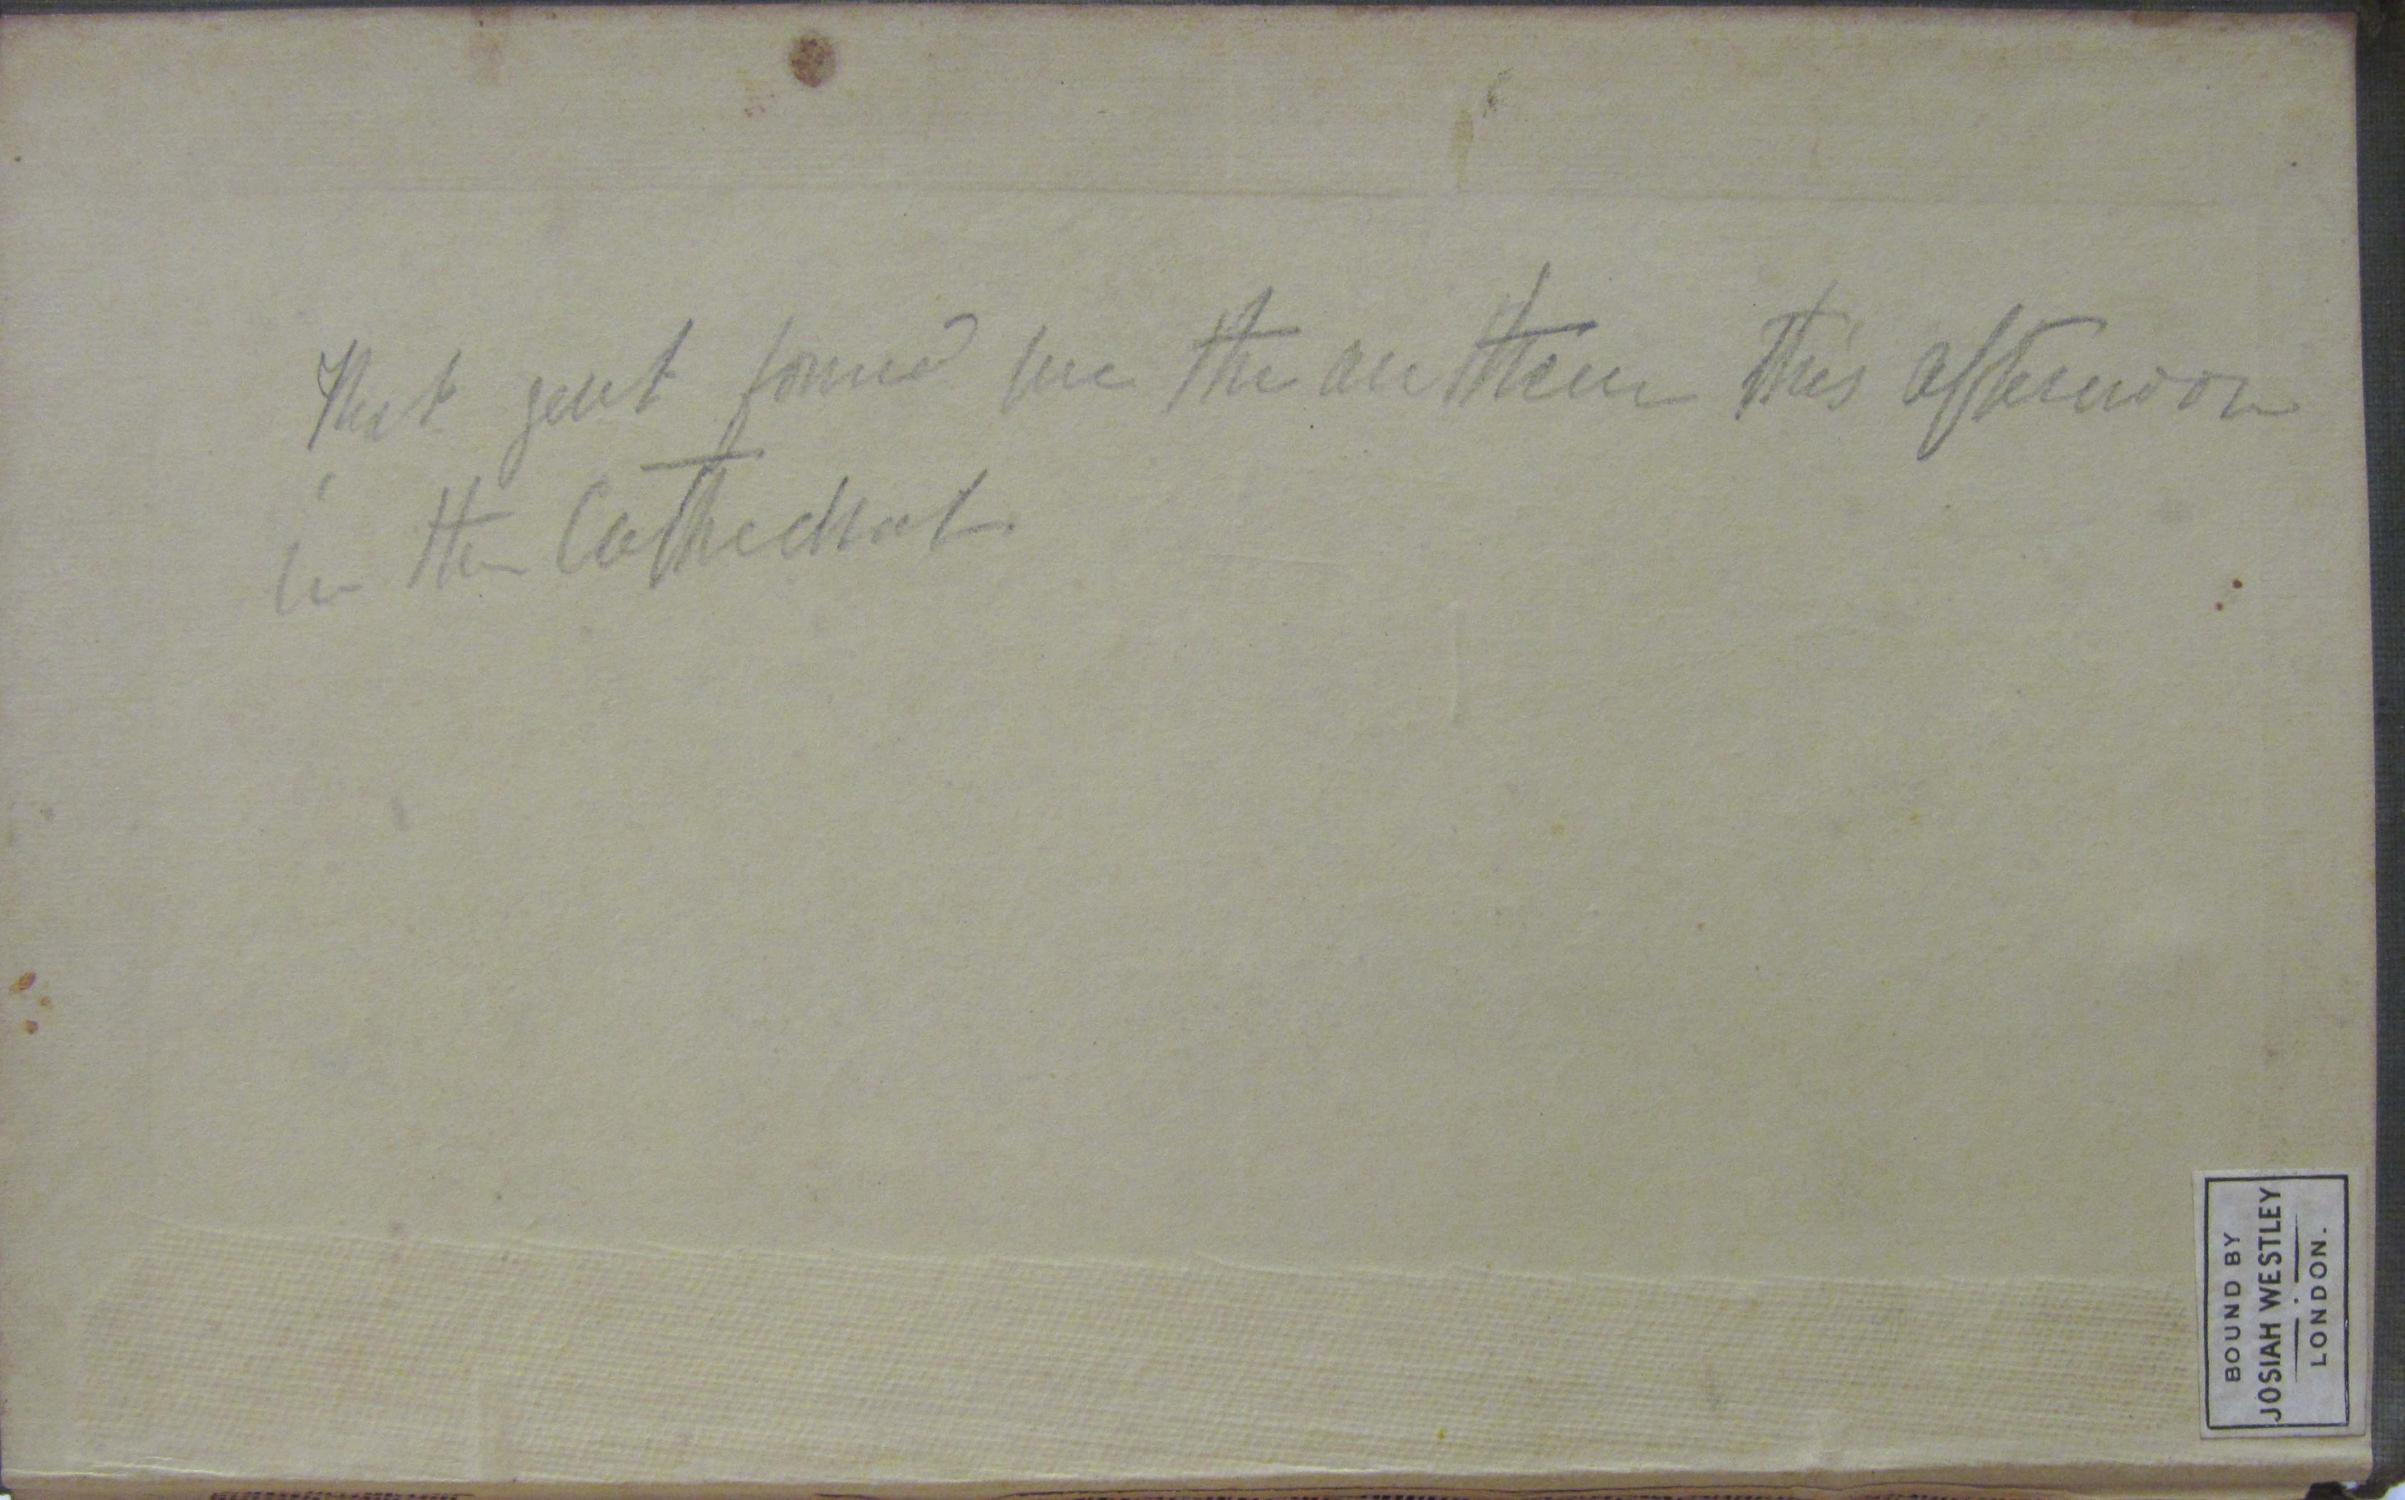 That gent found me the anthem this afternoon
in the Cathedral.
BOUND BY
JOSIAH WESTLEY
LONDON.